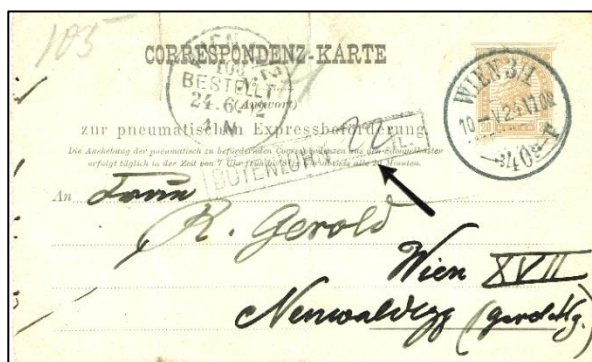 105
CORRESPONDENZ-KARTE
WIEN
BESTELLT
24.6
(Antwort)
zur pneumatischen Expressbeförderung.
Die Aushebung der pneumatisch zu befördernden Correspondenzen aus den Sammelkästen
erfolgt täglich in der Zeit von 7 Uhr früh bis Abends alle 20 Minuten.
BOTENLOHN 22
WIEN 3/1
40
An Frau
R. Gerold
Wien XVII
Neuwaldegg